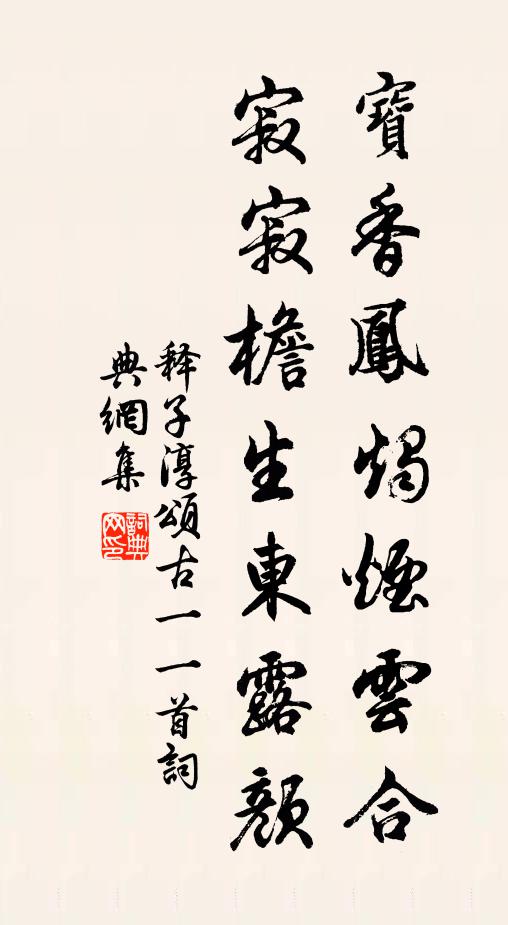 寶香鳳燭煙雲合
寂寂檐生東露顏
释子淳頌古一一首詞
典網集
詞典
网印